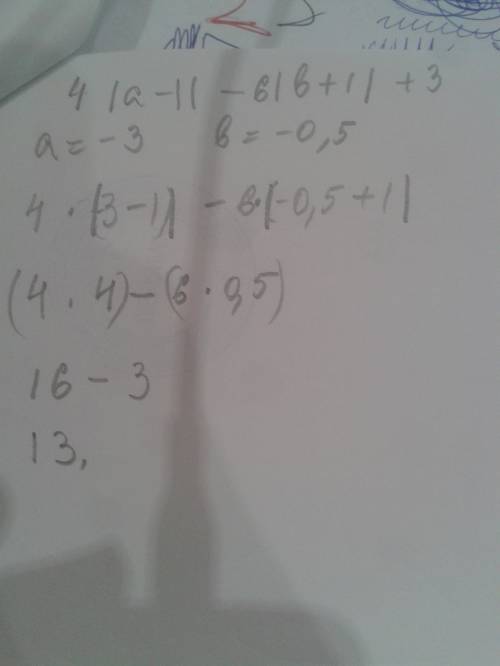 4 |a - 1| - 6|b + 1| + 3
a = -3 b = -0,5
4 · |3 - 1| - 6·|-0,5 + 1|
(4 · 4) - (6 · 0,5)
16 - 3
13,